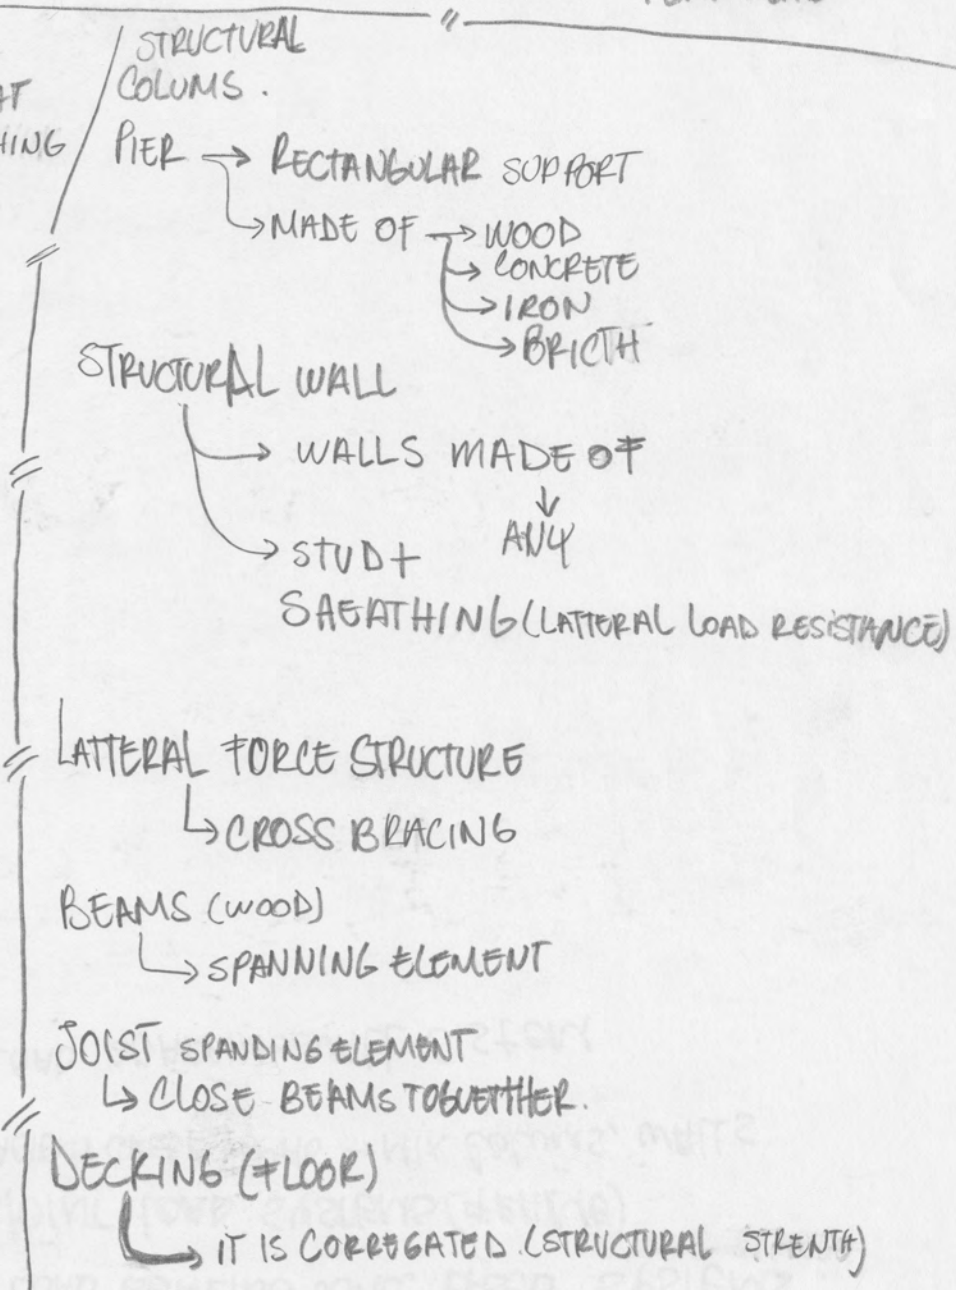 STRUCTURAL
COLUMS.
HING
PIER → RECTANGULAR SUPPORT
→ MADE OF → WOOD
→ CONCRETE
→ IRON
→ BRICTH
STRUCTURAL WALL
→ WALLS MADE OF
↓
→ STUD + ANY
SAEATHING (LATTERAL LOAD RESISTANCE)
LATTERAL FORCE STRUCTURE
↳ CROSS BRACING
BEAMS (WOOD)
↳ SPANNING ELEMENT
JOIST SPANDING ELEMENT
↳ CLOSE BEAMS TOGUETTHER.
DECKING (FLOOR)
↳ IT IS CORREGATED. (STRUCTURAL STRENTH)